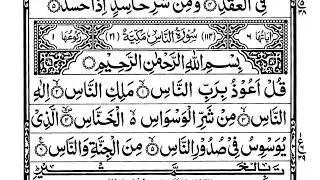 فِى الْعُقَدِ ۝ وَمِنْ شَرِّ حَاسِدٍ اِذَا حَسَدَ ۝
اٰيَاتُهَا ٦ سُوْرَةُ النَّاسِ مَكِّيَّةٌ رُكُوْعُهَا ١
بِسْمِ اللّٰهِ الرَّحْمٰنِ الرَّحِيْمِ ۝
قُلْ اَعُوْذُ بِرَبِّ النَّاسِ ۝ مَلِكِ النَّاسِ ۝ اِلٰهِ
النَّاسِ ۝ مِنْ شَرِّ الْوَسْوَاسِ ەۙ الْخَنَّاسِ ۝ الَّذِىْ
يُوَسْوِسُ فِىْ صُدُوْرِ النَّاسِ ۝ مِنَ الْجِنَّةِ وَالنَّاسِ ۝